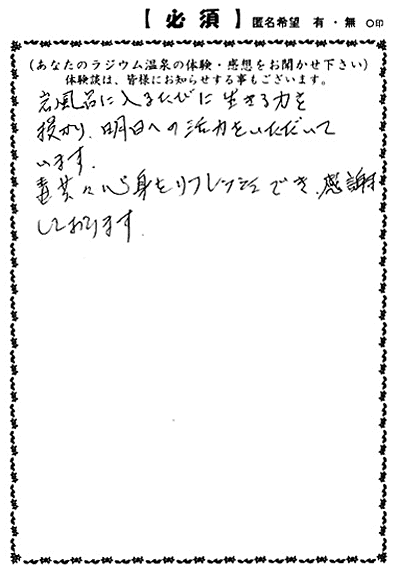 【必須】 匿名希望 有・無 ○印
(あなたのラジウム温泉の体験・感想をお聞かせ下さい)
体験談は、皆様にお知らせする事もございます。
岩風呂に入るたびに生きる力を
授かり、明日への活力をいただいて
います。
心身をリフレッシュでき、感謝
しております。